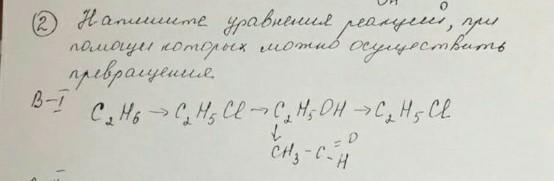 ② Напишите уравнения реакций, при
помощи которых можно осуществить
превращения.
В-I C₂H₆ → C₂H₅Cl → C₂H₅OH → C₂H₅Cl
↓
CH₃-C=O
-H